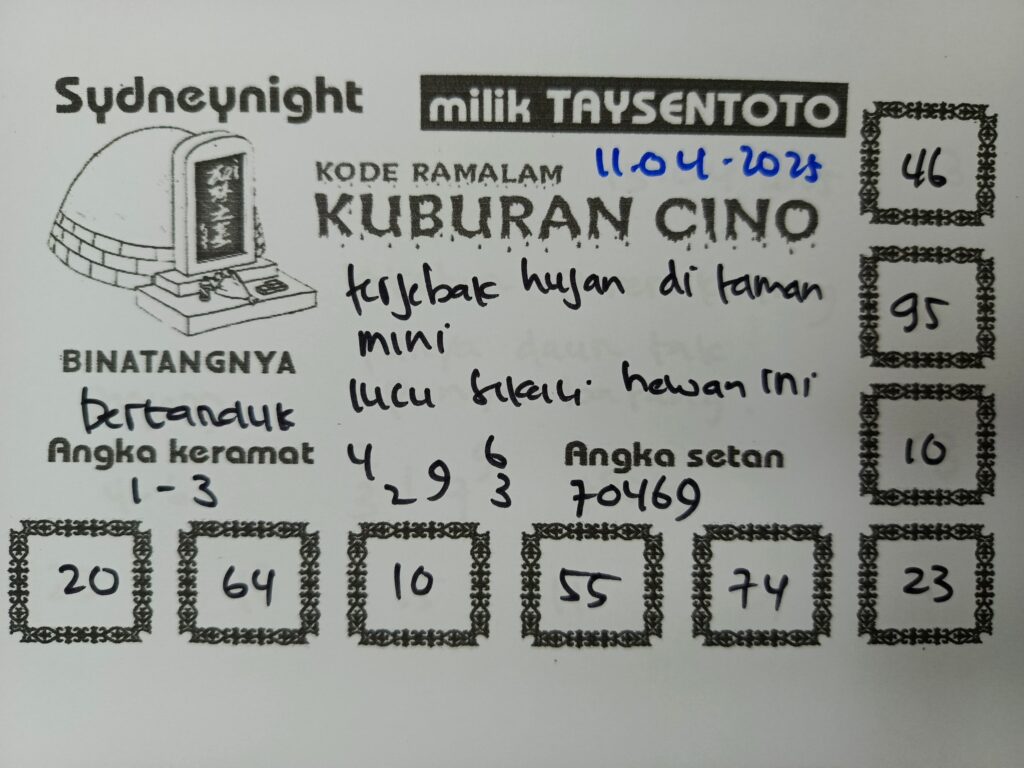 Sydneynight
milik TAYSENTOTO
KODE RAMALAM 11.04.2025
KUBURAN CINO
terjebak hujan di taman
mini
lucu sekali hewan ini
BINATANGNYA
bertanduk
Angka keramat
1-3
4 6
2 9 3
Angka setan
70469
46
95
10
20 64 10 55 74 23